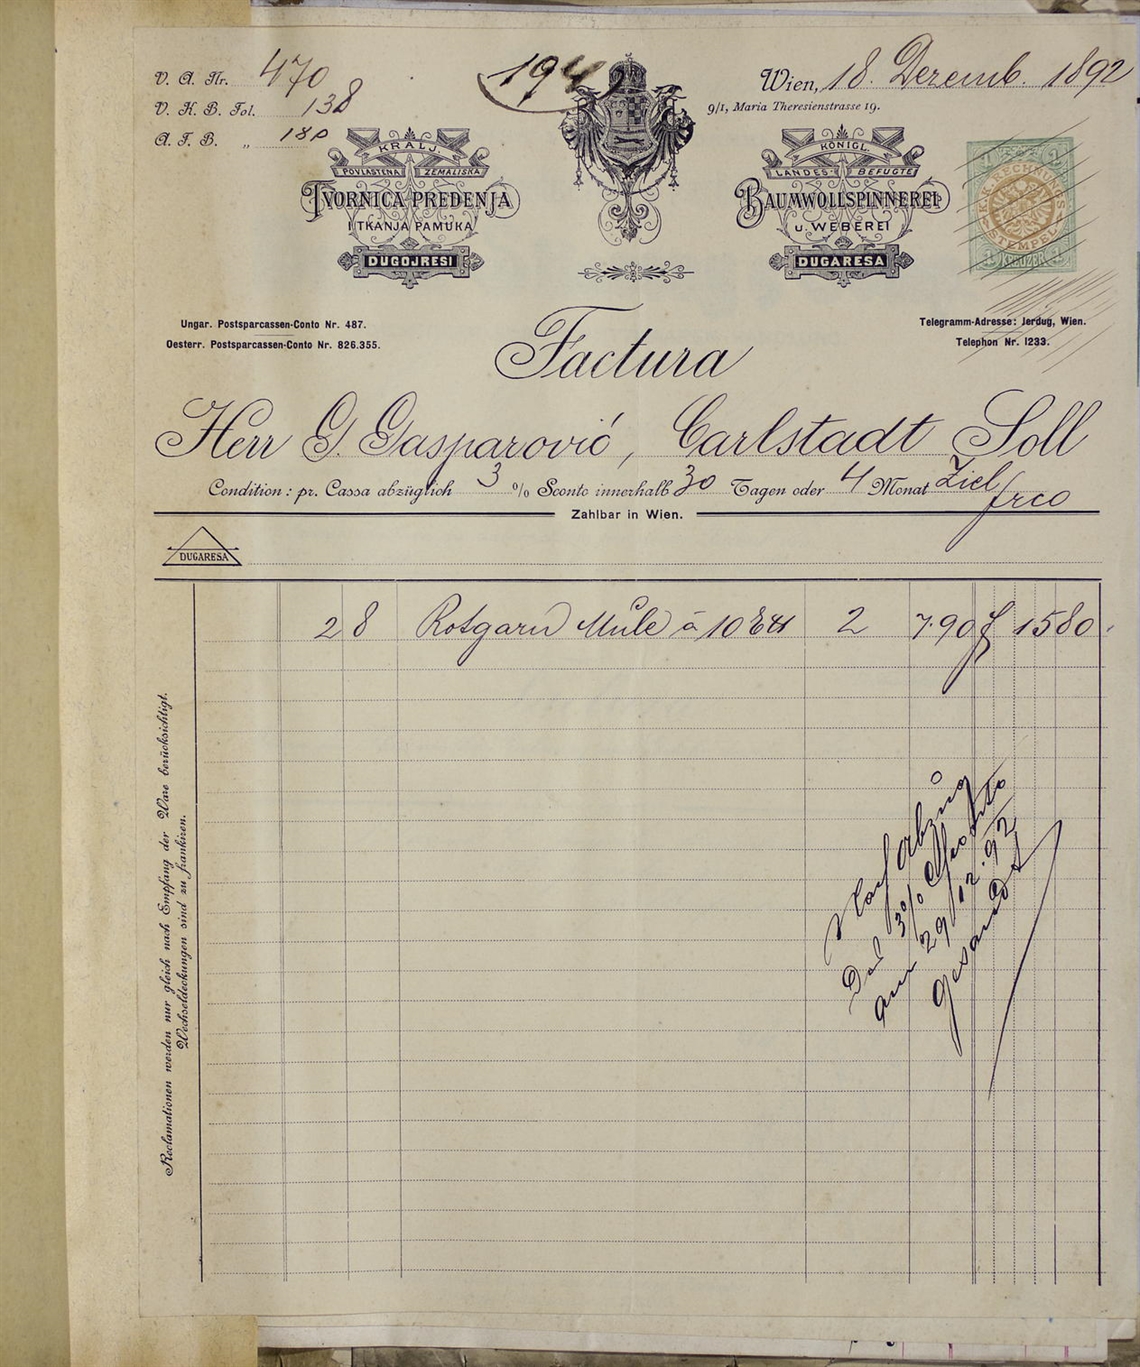 V. A. Nr. 470
V. K. B. Fol. 138
A. F. B. „ 180
194
Wien, 18. Dezemb. 1892
9/1, Maria Theresienstrasse 19.
KRALJ.
POVLASTENA ZEMALJSKA
TVORNICA PREDENJA
I TKANJA PAMUKA
DUGOJRESI
KÖNIGL.
LANDES- BEFUGTE
BAUMWOLLSPINNEREI
u. WEBEREI
DUGARESA
K.K. RECHNUNGS
STEMPEL
1 KREUZER
Ungar. Postsparcassen-Conto Nr. 487.
Oesterr. Postsparcassen-Conto Nr. 826.355.
Telegramm-Adresse: Jerdug, Wien.
Telephon Nr. 1233.
Factura
Herr G. Gasparović, Carlstadt Soll
Condition: pr. Cassa abzüglich 3 % Sconto innerhalb 30 Tagen oder 4 Monat Ziel frco
Zahlbar in Wien.
DUGARESA
28 Rotgarn Mule à 10 2 7.90 f 1580
Nach Abzug
Der 3% Sconto
am 29/12.92
gesandt
Reclamationen werden nur gleich nach Empfang der Ware berücksichtigt.
Wechseldeckungen sind zu frankiren.